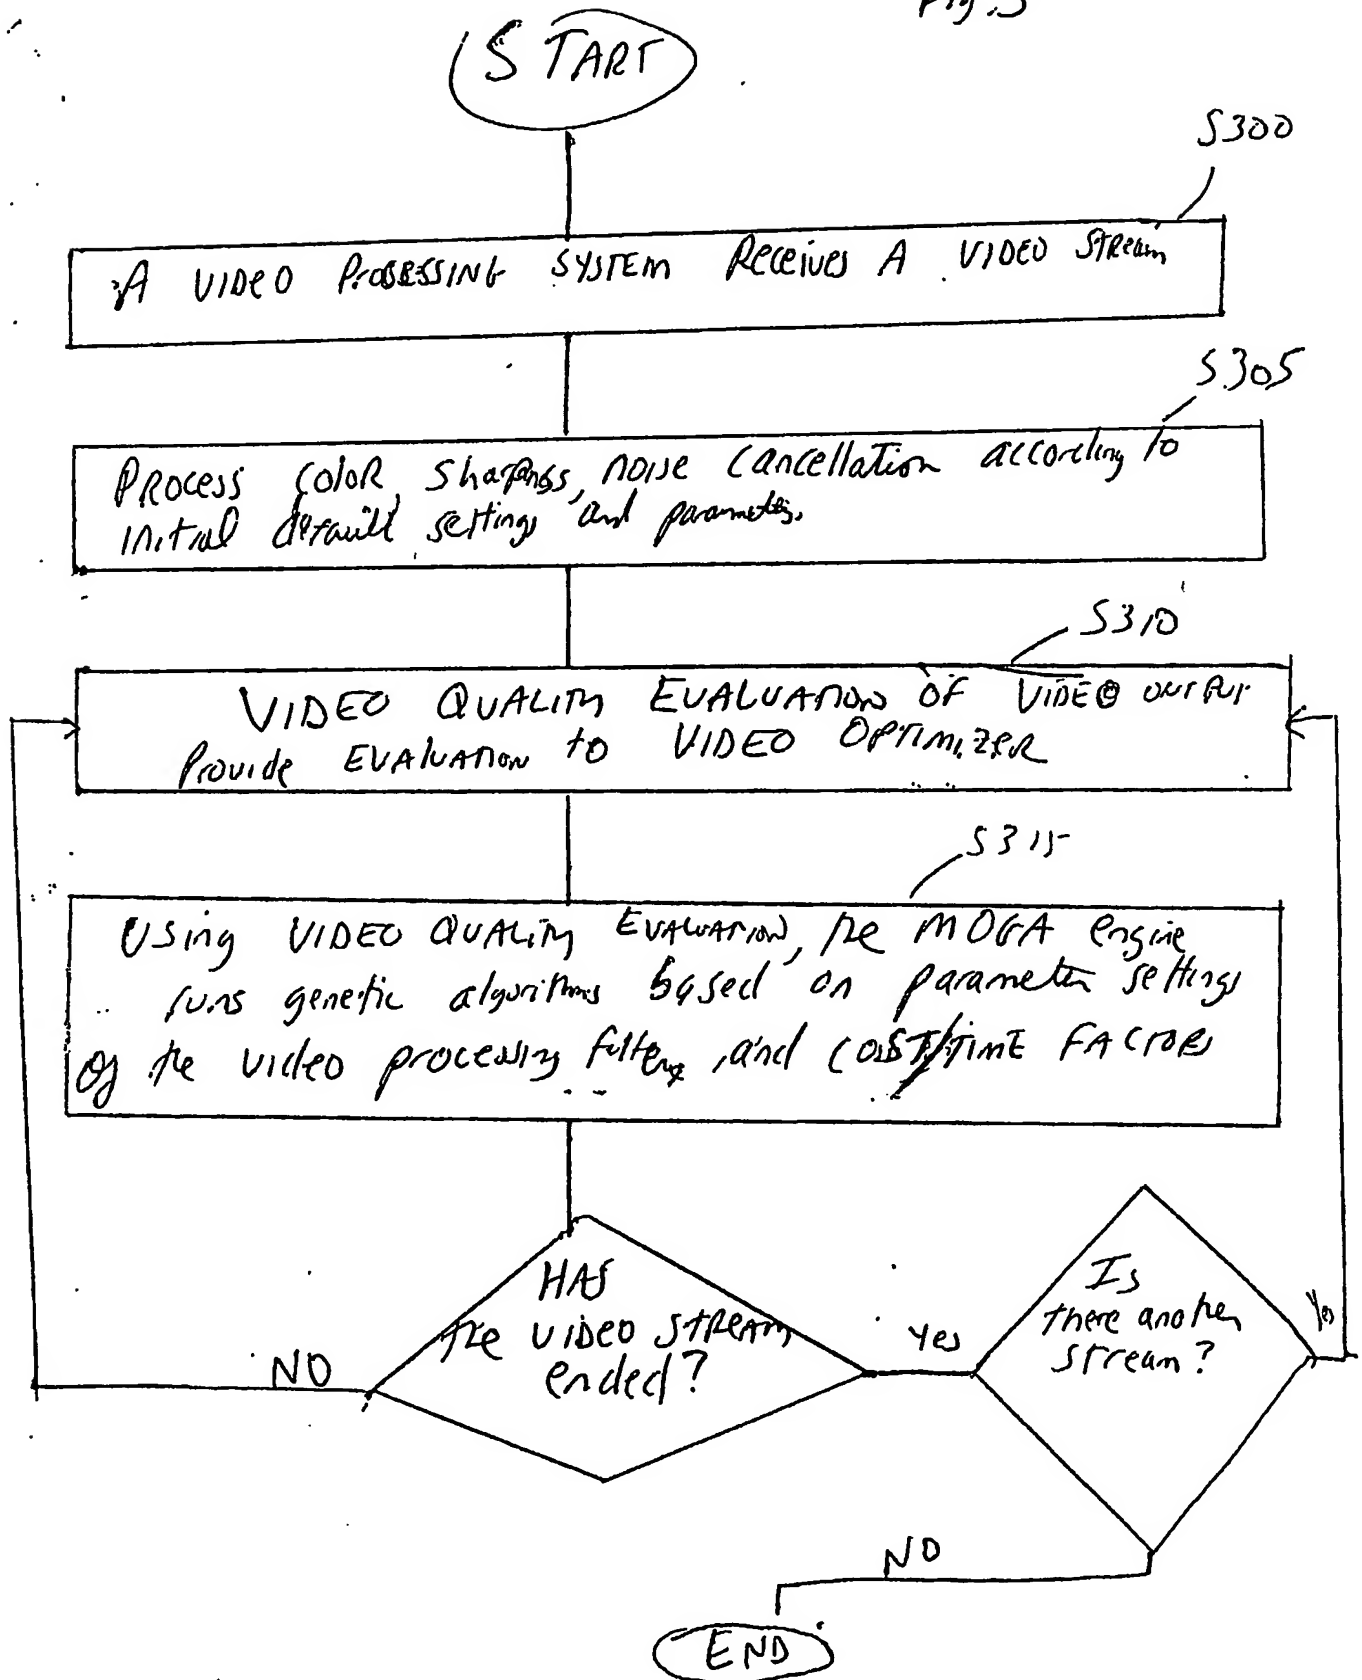 Fig. 3
START
S300
A VIDEO PROSESSING SYSTEM Receives A VIDEO STReam
S305
PROCESS COLOR, Sharpness, noise cancellation according to
initial default settings and parameters.
S310
VIDEO QUALITY EVALUATION OF VIDEO OUTPUT
Provide EVALUATION to VIDEO OPTIMIZER
S315
USing VIDEO QUALITY EVALUATION, the MOGA engine
runs genetic algorithms based on parameter settings
of the video processing filters, and COST/TIME FACTORS
HAS
the VIDEO STReam
ended?
NO
Yes
Is
there another
stream?
Yes
NO
END